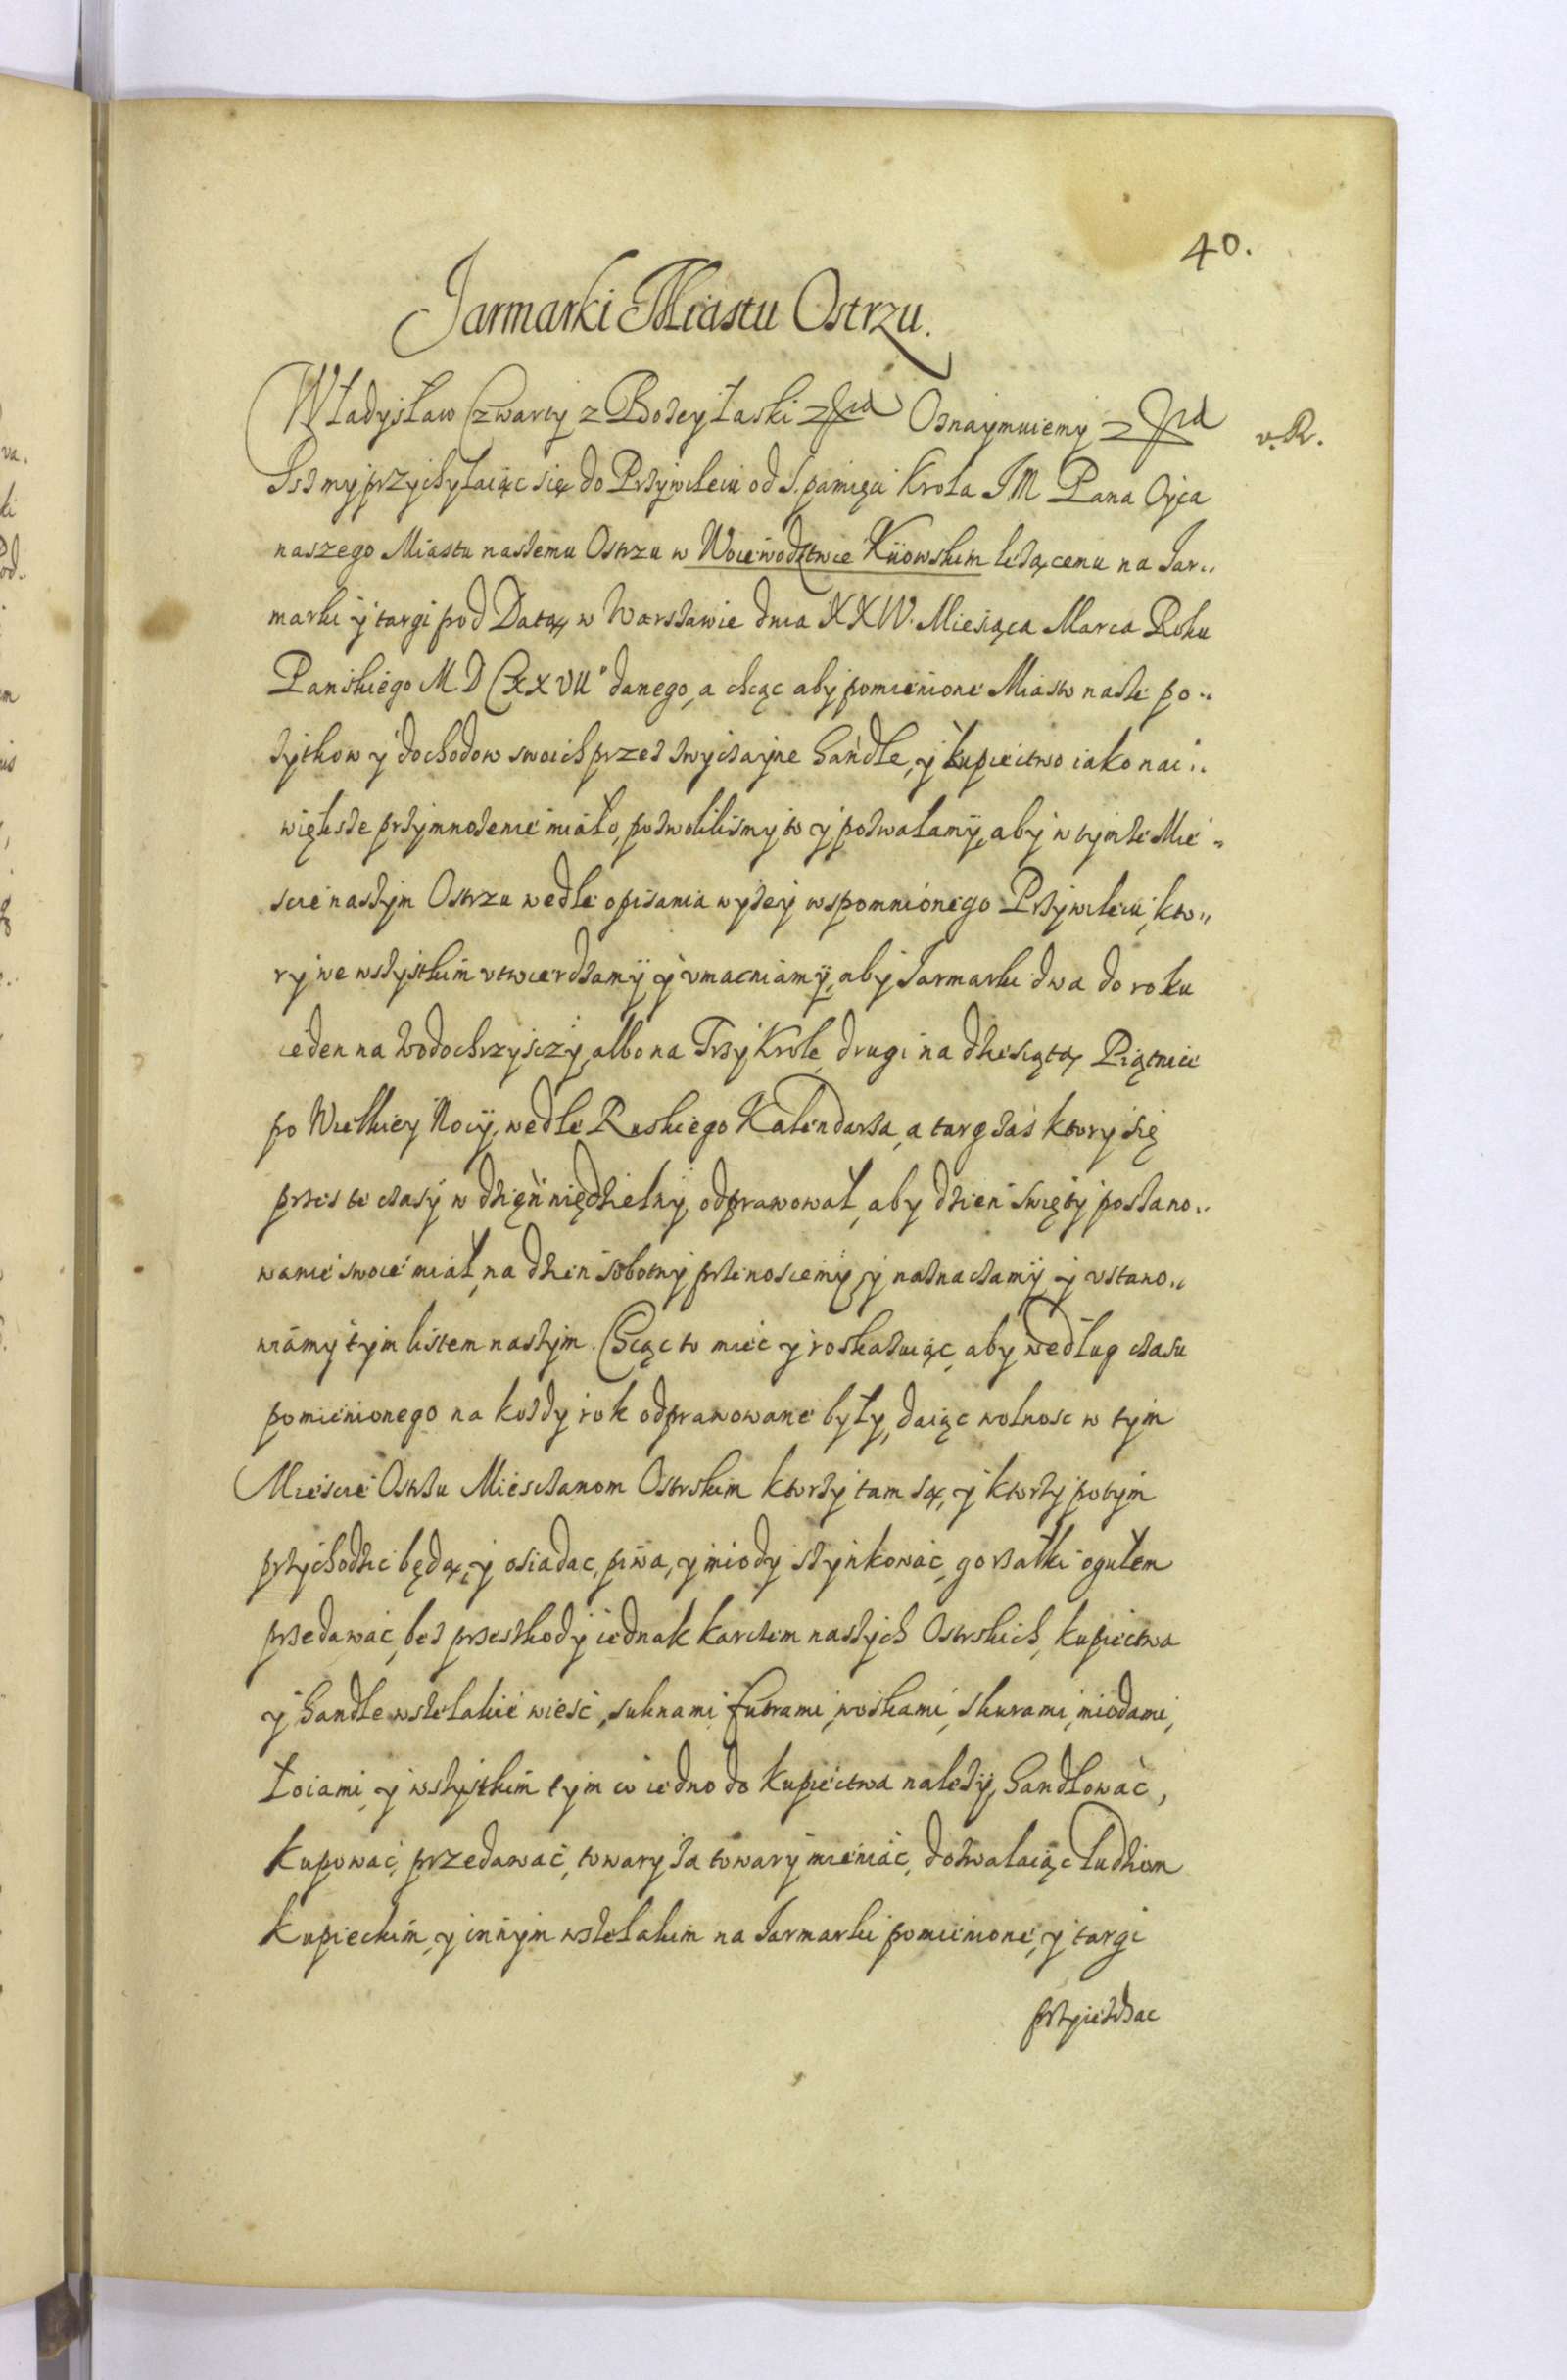 40.
Jarmarki Miastu Ostrzu.
Władysław Czwarty z Bożey łaski Oznaymuiemy
v. R.
Isz my przychylaiąc się do Przywileiu od S. pamięci Krola JM Pana Oyca
naszego Miastu naszemu Ostrzu w Woiewodztwie Kiiowskim leżącemu na Jar„
marki y targi pod Datą w Warszawie dnia XXIV. Miesiąca Marca Roku
Panskiego M D CXXVII° danego, a chcąc aby pomienione Miasto nasze po„
żytkow y dochodow swoich przez zwyczayne handle, y kupiectwo iako nai„
większe przymnożenie miało, pozwoliliśmy to y pozwalamy, aby w tymże Mie„
scie naszym Ostrzu wedle opisania wyżey wspomnionego Przywileiu, kto„
ry we wszystkim utwierdzamy y vmacniamy, aby Jarmarki dwa do roku
ieden na Wodochrzyszczy, albo na Trzy Krole, drugi na dziesiątą Piątnice
po Wielkiey Nocy, wedle Ruskiego Kalendarza, a targ zaś ktory się
przes te czasy w dzień niędzielny odprawował, aby dzień swięty poszano„
wanie swoie miał, na dzien sobotny przenosiemy, y naznaczamy y vstano„
wiamy tym listem naszym. Chcąc to mieć y roskazuiąc, aby według czasu
pomienionego na kożdy rok odprawowane były, daiąc wolnosc w tym
Miescie Ostrzu Miesczanom Ostrskim ktorzy tam są, y ktorzy potym
przychodzic będą, y osiadac, piwa, y miody szynkować, gorzałki ogułem
przedawać, bez przeszkody iednak karczem naszych Ostrskich, kupiectwa
y handle wszelakie wieść, suknami, futrami, woskami, skurami, miodami,
łoiami, y wszystkim tym co iedno do kupiectwa należy, handlować,
kupować, przedawać, towary za towary mieniać, dozwalaiąc ludziom
kupieckim, y innym wszelakim na Jarmarki pomienione, y targi
przyieżdzac